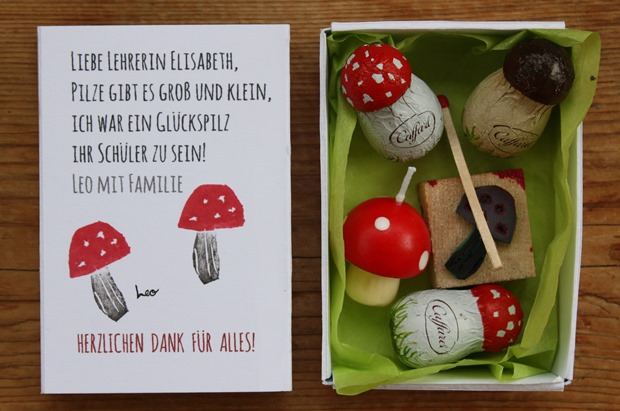 LIEBE LEHRERIN ELISABETH,
PILZE GIBT ES GROß UND KLEIN,
ICH WAR EIN GLÜCKSPILZ
IHR SCHÜLER ZU SEIN!
LEO MIT FAMILIE
Leo
HERZLICHEN DANK FÜR ALLES!
Caffarel
Caffarel
Caffarel